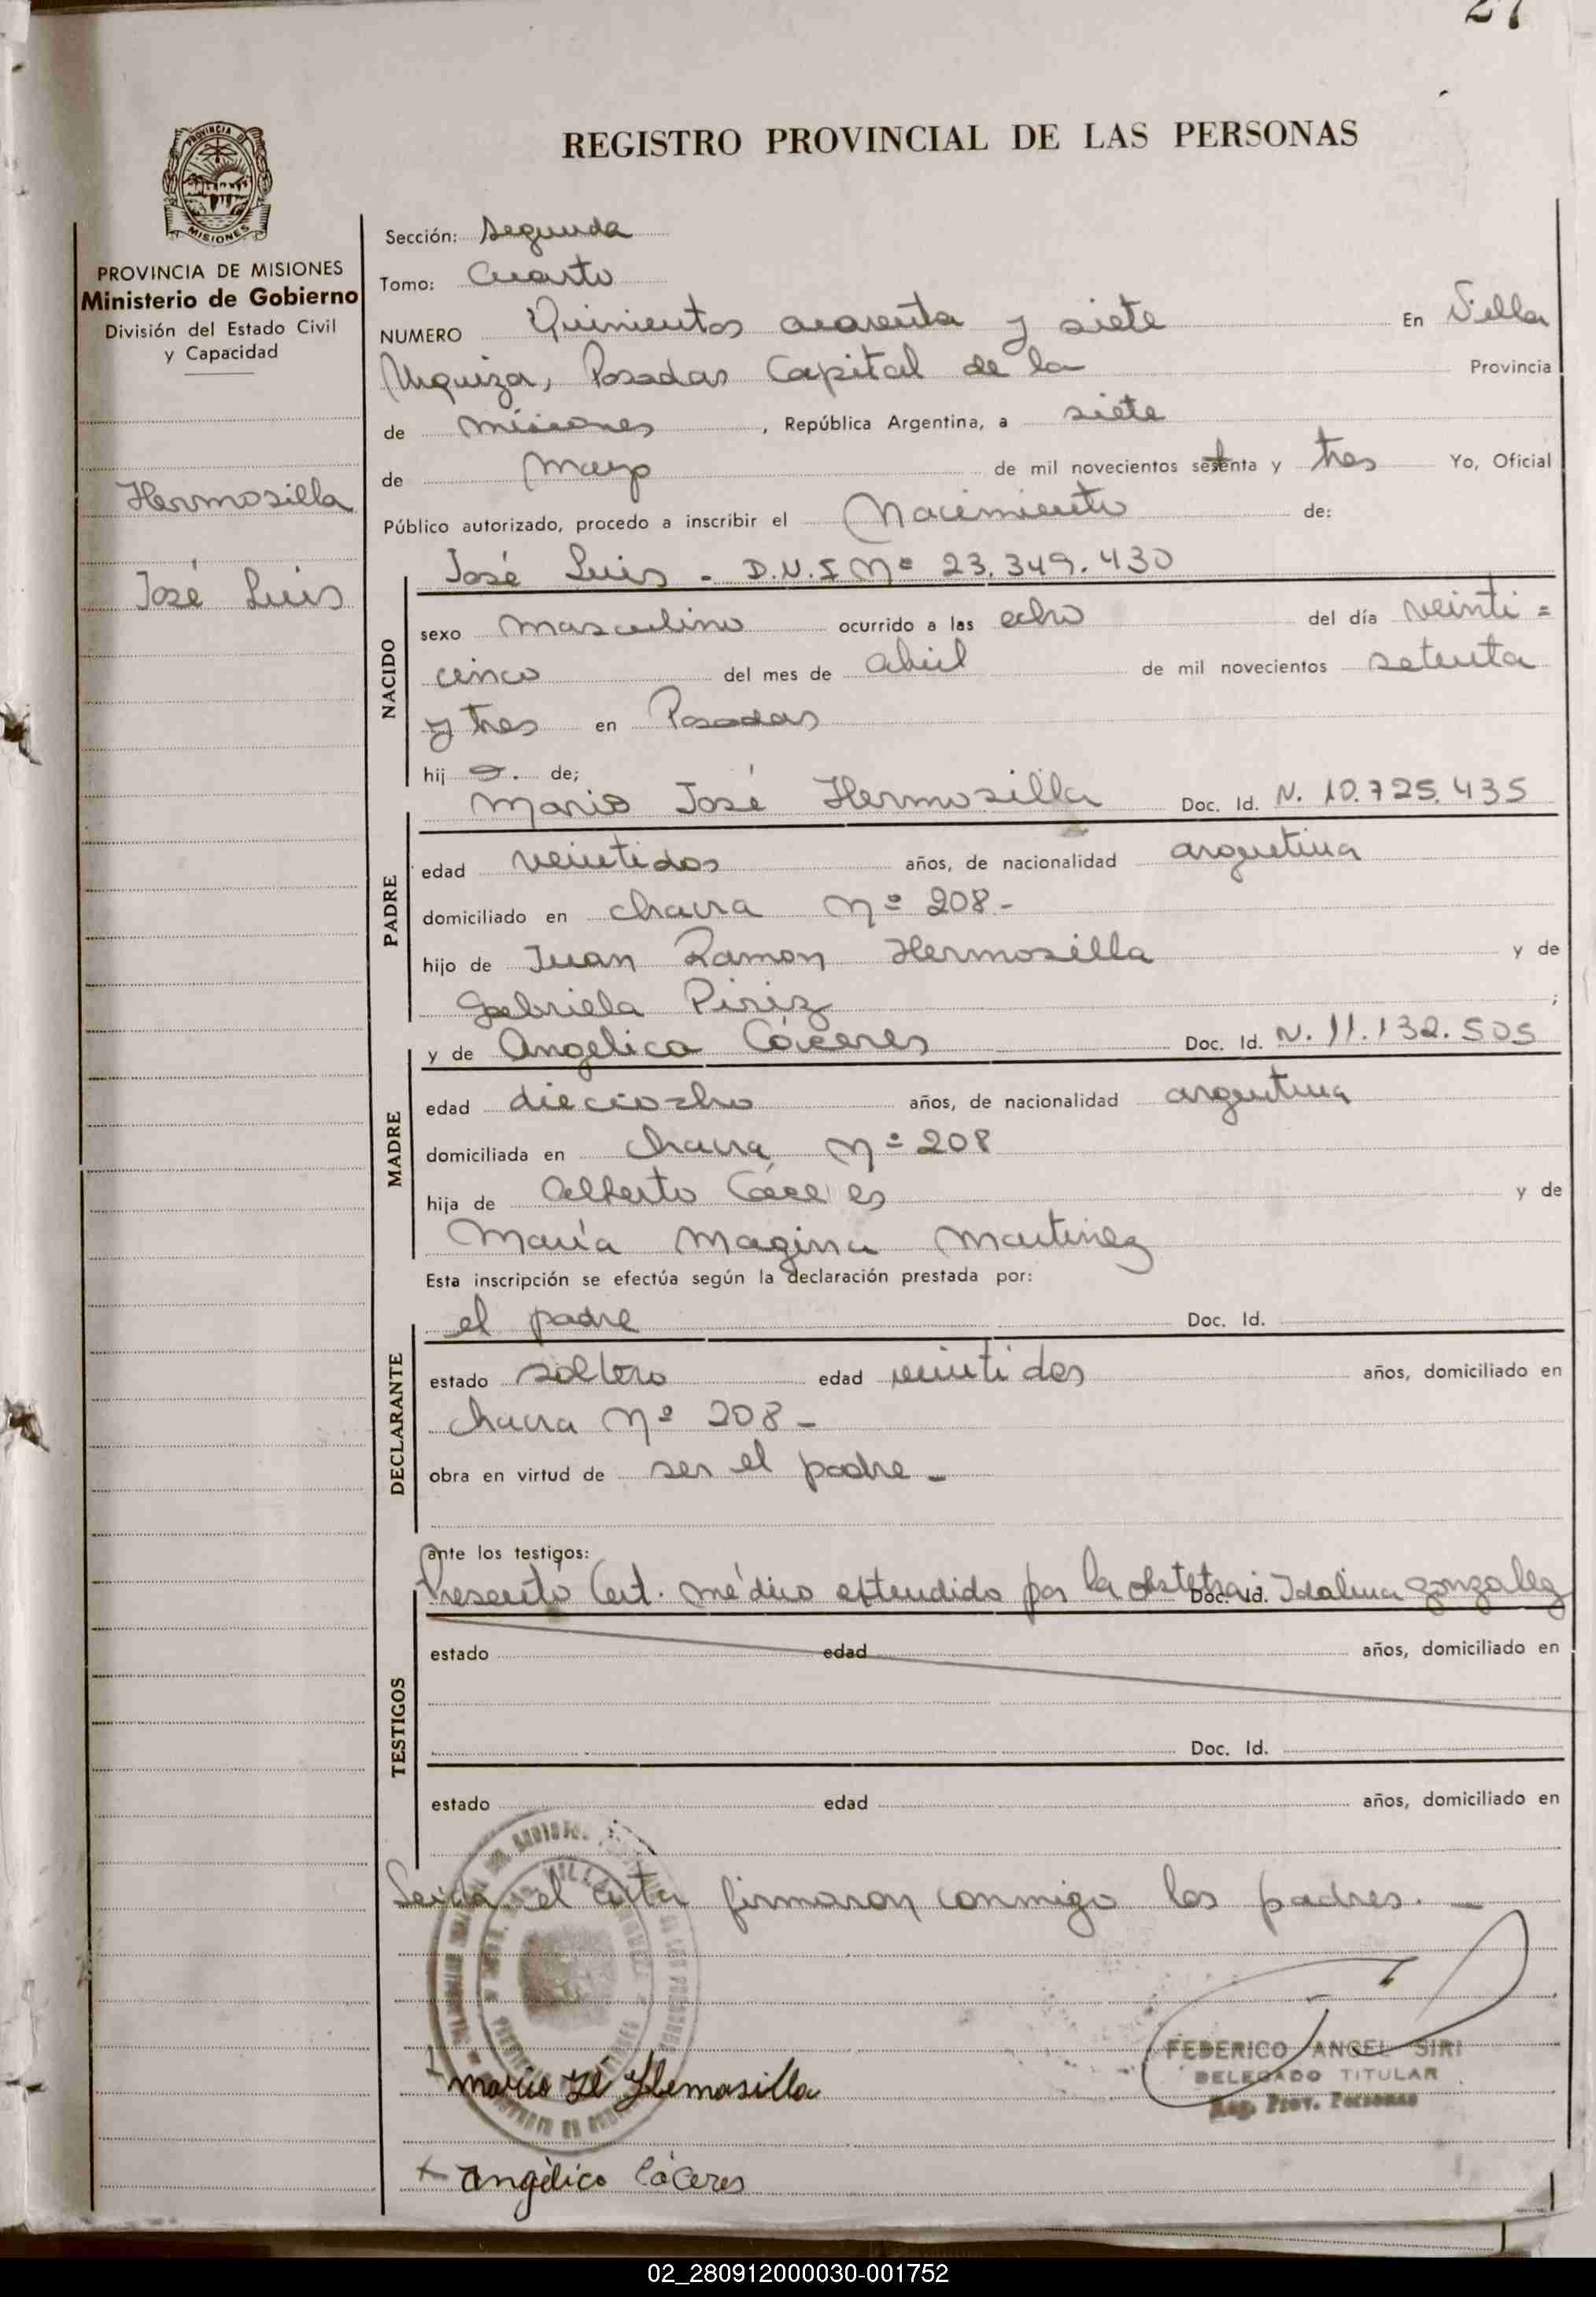 27
REGISTRO PROVINCIAL DE LAS PERSONAS
PROVINCIA DE MISIONES
PROVINCIA DE MISIONES
Ministerio de Gobierno
División del Estado Civil
y Capacidad
Hermosilla
José Luis
Sección: Segunda
Tomo: Cuarto
NUMERO Quinientos cuarenta y siete En Villa
Urquiza, Posadas Capital de la Provincia
de Misiones, República Argentina, a siete
de Mayo de mil novecientos setenta y tres Yo, Oficial
Público autorizado, procedo a inscribir el Nacimiento de:
José Luis - D.N.I Nº 23.349.430
NACIDO
sexo masculino ocurrido a las ocho del día veinti=
cinco del mes de abril de mil novecientos setenta
y tres en Posadas
hijo. de;
Mario José Hermosilla Doc. Id. N. 10.725.435
PADRE
edad veintidos años, de nacionalidad argentina
domiciliado en chacra Nº 208-
hijo de Juan Ramon Hermosilla y de
Gabriela Piriz ;
y de Angelica Cáceres Doc. Id. N. 11.132.505
MADRE
edad dieciocho años, de nacionalidad argentina
domiciliada en chacra Nº 208
hija de Alberto Cáceres y de
María Magina Martinez
Esta inscripción se efectúa según la declaración prestada por:
el padre Doc. Id.
DECLARANTE
estado soltero edad veintidos años, domiciliado en
chacra Nº 208-
obra en virtud de ser el padre-
ante los testigos:
Presentó Cert. médico extendido por la obstetra Idalina Gonzalez Doc. Id.
TESTIGOS
estado edad años, domiciliado en
Doc. Id.
estado edad años, domiciliado en
Leida el acta firmaron conmigo los padres.-
FEDERICO ANGEL SIRI
DELEGADO TITULAR
Reg. Prov. Personas
Mario Hermosilla
Angélica Cáceres
02_280912000030-001752